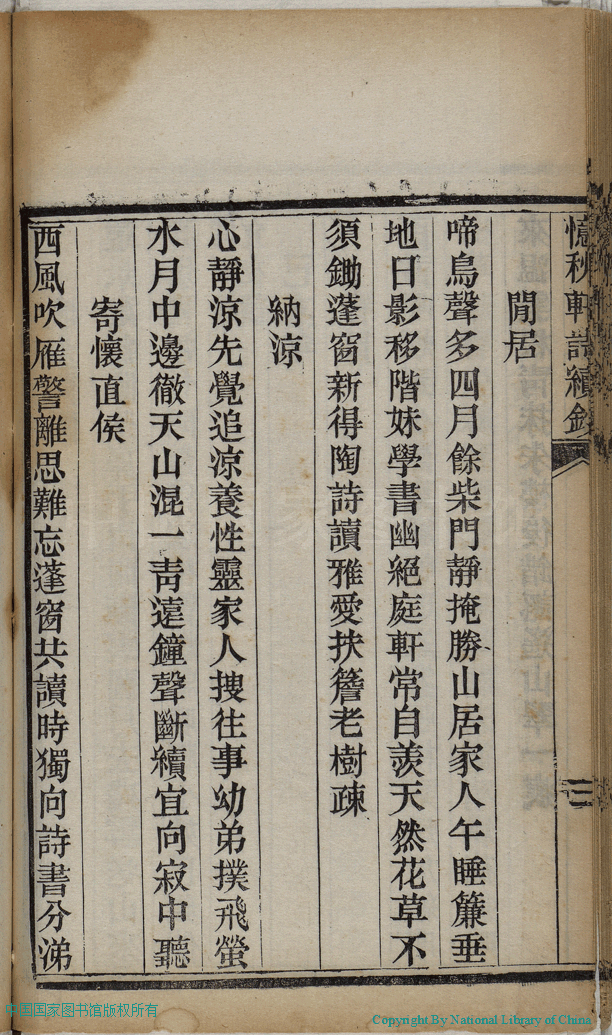 憶秋軒詩續鈔
三
閒居
啼鳥聲多四月餘柴門靜掩勝山居家人午睡簾垂
地日影移階妹學書幽絕庭軒常自羨天然花草不
須鋤蓬窗新得陶詩讀雅愛扶簷老樹疎
納涼
心靜涼先覺追涼養性靈家人搜往事幼弟撲飛螢
水月中邊徹天山混一靑遠鐘聲斷續宜向寂中聽
寄懷直侯
西風吹雁警離思難忘蓬窗共讀時獨向詩書分涕
中国国家图书馆版权所有
Copyright By National Library of China